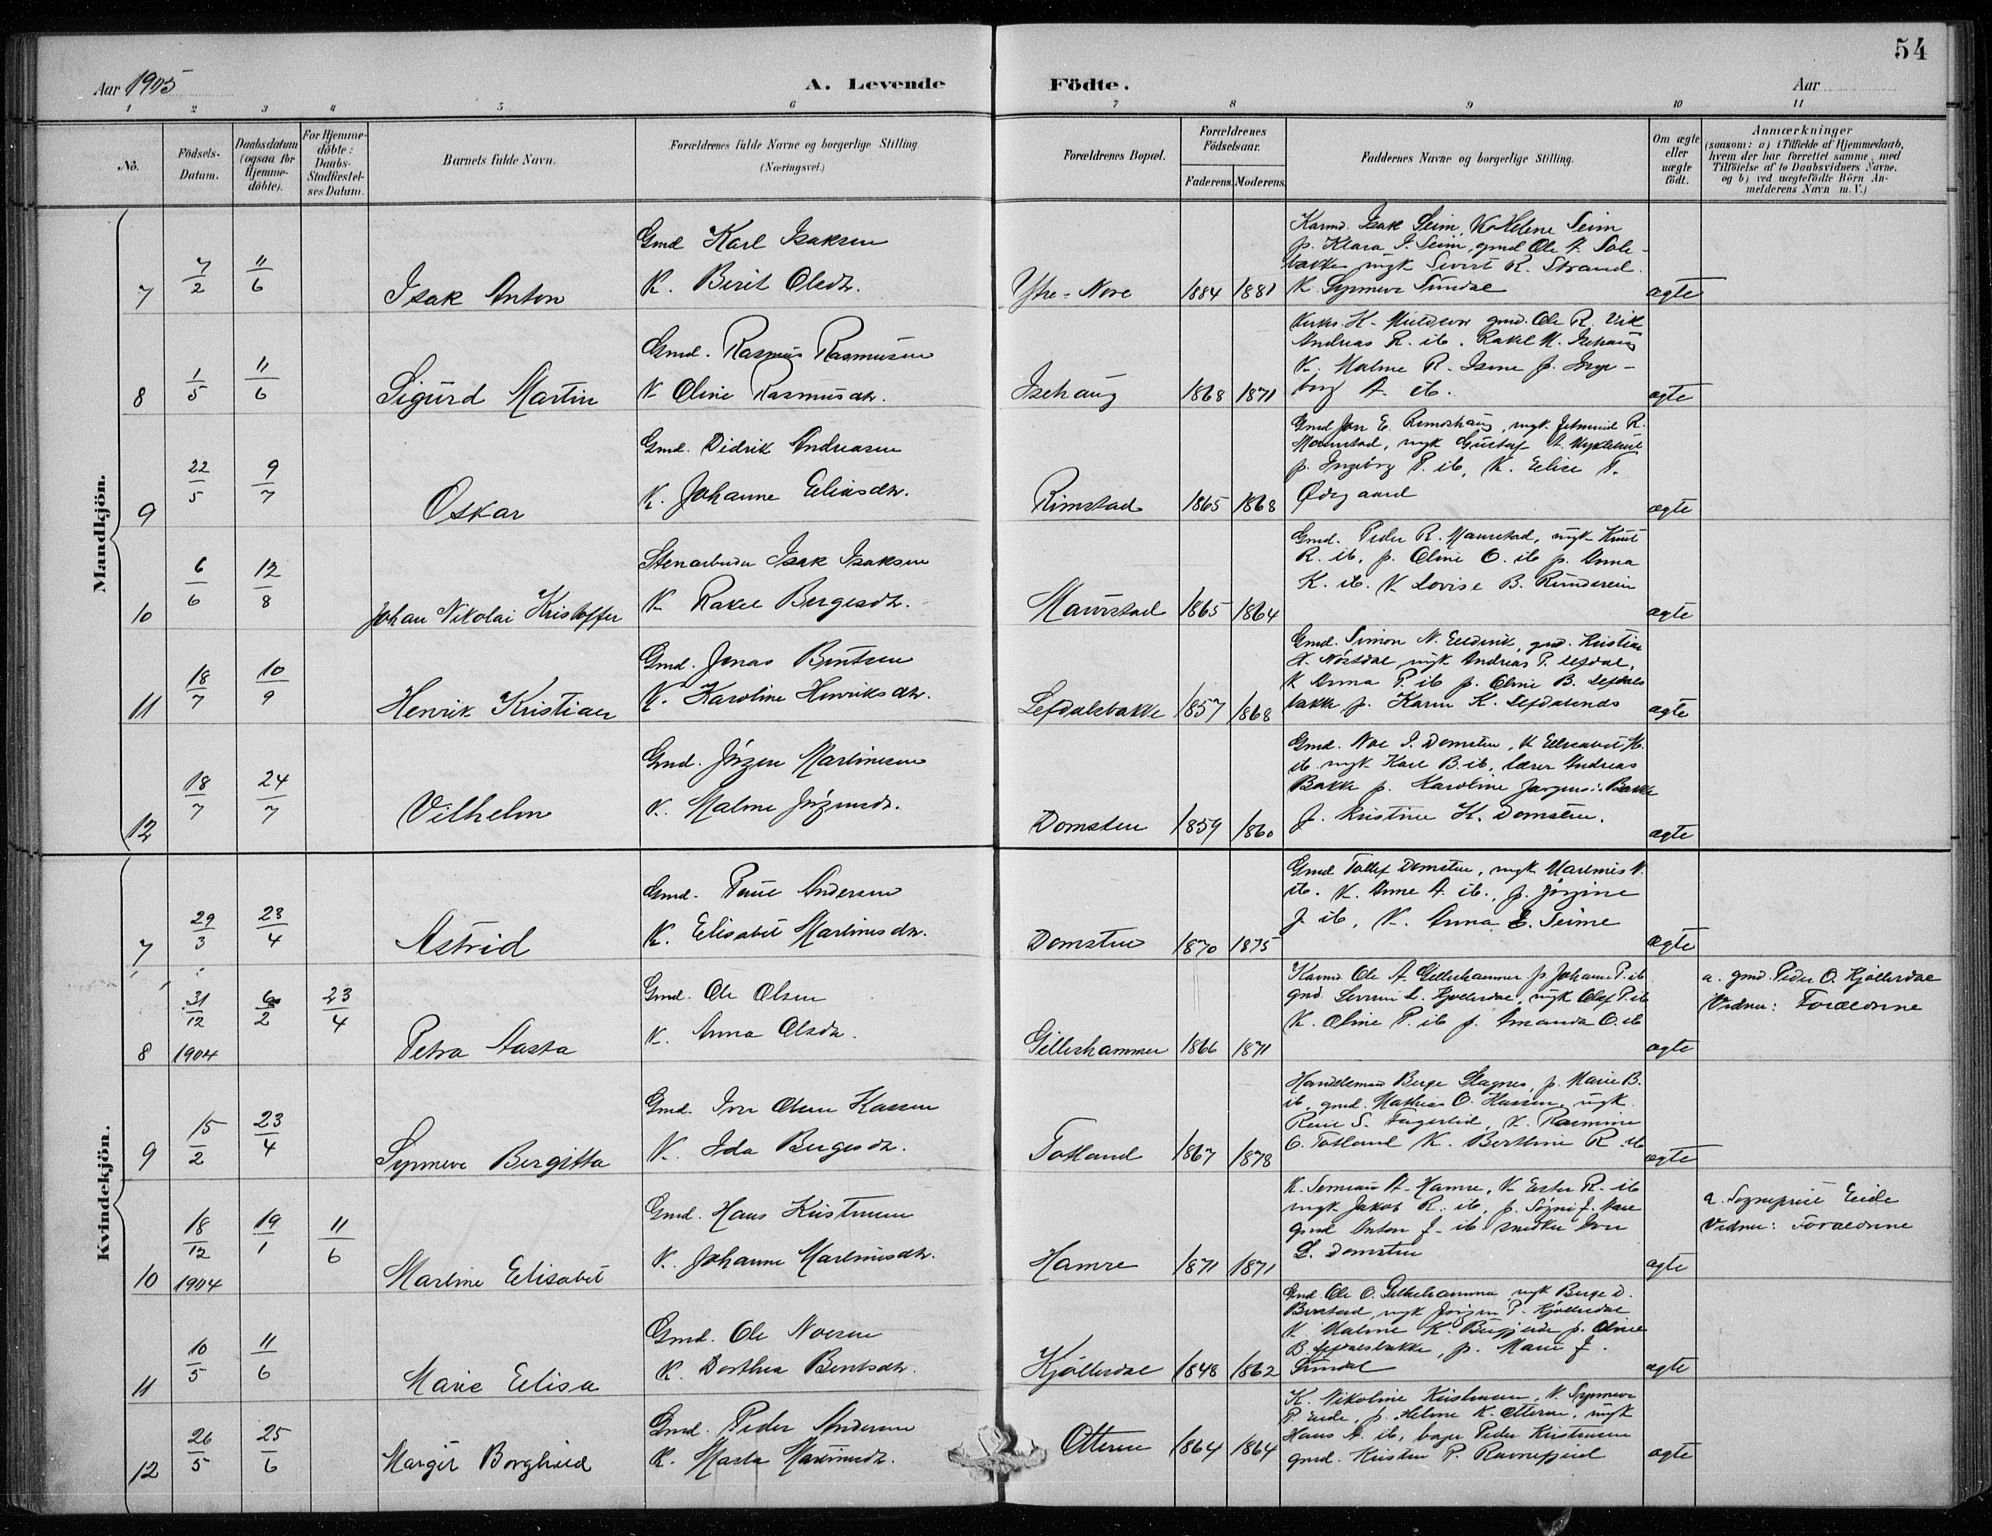 54
Aar 1905
A. Levende
Födte.
Aar
1 2 3 4 5 6 7 8 9 10 11
No.
Födsels-
Datum.
Daabsdatum
(ogsaa for
Hjemme-
döbte).
For Hjemme-
döbte:
Daabs-
Stadfæstel-
ses Datum.
Barnets fulde Navn.
Forældrenes fulde Navne og borgerlige Stilling.
(Næringsvei.)
Forældrenes Bopæl.
Forældrenes
Födselsaar.
Faderens. Moderens.
Faddernes Navne og borgerlige Stilling.
Om ægte
eller
uægte
født.
Anmærkninger
(saasom: a) i Tilfælde af Hjemmedaab,
hvem der har forrettet samme, med
Tilföielse af to Daabsvidners Navne.
og b) ved uægtefödte Börn An-
melderens Navn m. V.)
Mandkjön.
7
7/2
11/6
Isak Anton
Gmd Karl Isaksen
K. Berit Olsdtr.
Ytre-Nore
1884 1881
Karmd. Isak Seim, K Helene Seim
p. Klara I. Seim, gmd Ole A. Sole-
bakke ungk Sivert R. Strand.
K. Synneve Sundal
ægte
8
1/5
11/6
Sigurd Martin
Gmd. Rasmus Rasmusen
K Oline Rasmusdtr.
Isehaug
1868 1871
gmd. Ole R. Vik
Andreas R. ib. Rakel M. Isehaug
K. Malene R. Isene p. Inge-
borg A. ib.
ægte
9
22/5
9/7
Oskar
Gmd. Didrik Andreasen
K. Johanne Eliasdtr.
Rimstad
1865 1868
Gmd Jon E. Rimshaug, ungk. R.
Maurstad, ungk Gustaf A.
p. Ingeborg P. ib, K. Elise T.
Ødegaard
ægte
10
6/6
12/8
Johan Nikolai Kristoffer
Stenarbeider Isak Isaksen
K Rakel Bergesdtr.
Maurstad
1865 1864
Gmd. Peder R. Maurstad, ungk Knut
R. ib, p. Oline O. ib p. Anna
K. ib. K Lovise B. Rundereim
ægte
11
18/7
10/9
Henrik Kristian
Gmd. Jonas Bentsen
K. Karoline Henriksdtr.
Lefdalsbakke
1857 1868
Gmd. Simon N. Eldevik, gmd. Kristian
A. Nørsdal, ungk Andreas P. Lefdal,
K Anna P. ib p. Oline B. Lefdals
bakke p. Karen K. Lefdalsnes
ægte
12
18/7
24/7
Vilhelm
Gmd. Jørgen Martinusen
K. Malene Jørgensdtr.
Domsten
1859 1860
Gmd. Noe I. Domsten, K Elisabet M.
ib. ungk Karl B. ib, lærer Andreas
Bakke p. Karoline Jørgens. Bakke
p. Kristine K. Domsten.
ægte
Kvindekjön.
7
29/3
23/4
Astrid
Gmd. Paul Andersen
K. Elisabet Martinusdtr.
Domsten
1870 1875
Gmd Tollef Domsten, ungk Martinus N.
ib. K. Anne A. ib., p. Jørgine
J ib, K. Anna E. Seime
ægte
8
31/12
1904
6/2
23/4
Petra Aasta
Gmd. Ole Olsen
K. Anna Olsdtr.
Gilleshammer
1866 1871
Karmd Ole A. Gilleshammer p. Johanne P. ib
gmd L. Kjøllesdal, ungk Olaf P. ib
K. Oline P. ib p. Amanda O. ib
ægte
a. gmd. Peder O. Kjøllesdal
Vidner: Forældrene
9
15/2
23/4
Synneve Bergitta
Gmd. Iver Olsen Kassen
K. Ida Bergesdtr.
Totland
1867 1878
Handelsmand Berge Hagnes, p. Marie B.
ib, gmd. Mathias O. Hassen, ungk.
S. K. Rasmine
O. Totland K. Berthine R. ib
ægte
10
18/12
1904
19/1
11/6
Martine Elisabet
Gmd. Hans Kristensen
K. Johanne Martinusdtr.
Hamre
1871 1871
K. A. Hamre, K Ester R. ib
ungk Jakob R. ib, p. Søgni J.
gmd Anton J. ib snedker Iver
L. Domsten
ægte
a. Sogneprest Eide
Vidner: Forældrene
11
10/5
11/6
Marie Elisa
Gmd. Ole Noesen
K. Dorthea Bentsdtr.
Kjøllesdal
1848 1862
Gmd. Ole O. Gilleshammer ungk Berge D.
ungk Jørgen P. Kjøllesdal
K. Malene K. p. Oline
B. Lefdalsbakke, p. Marie J.
Sundal
ægte
12
26/5
25/6
Margit Borghild
Gmd. Peder Andersen
K. Marta Martinusdtr.
Otteren
1864 1864
K. Nikoline Kristensen, K. Synneve
P. Eide, p. Helene K. Otteren, ungk
Hans A. ib, bager Peder Kristensen
gmd. Kristen P. Ravnefjeld
ægte